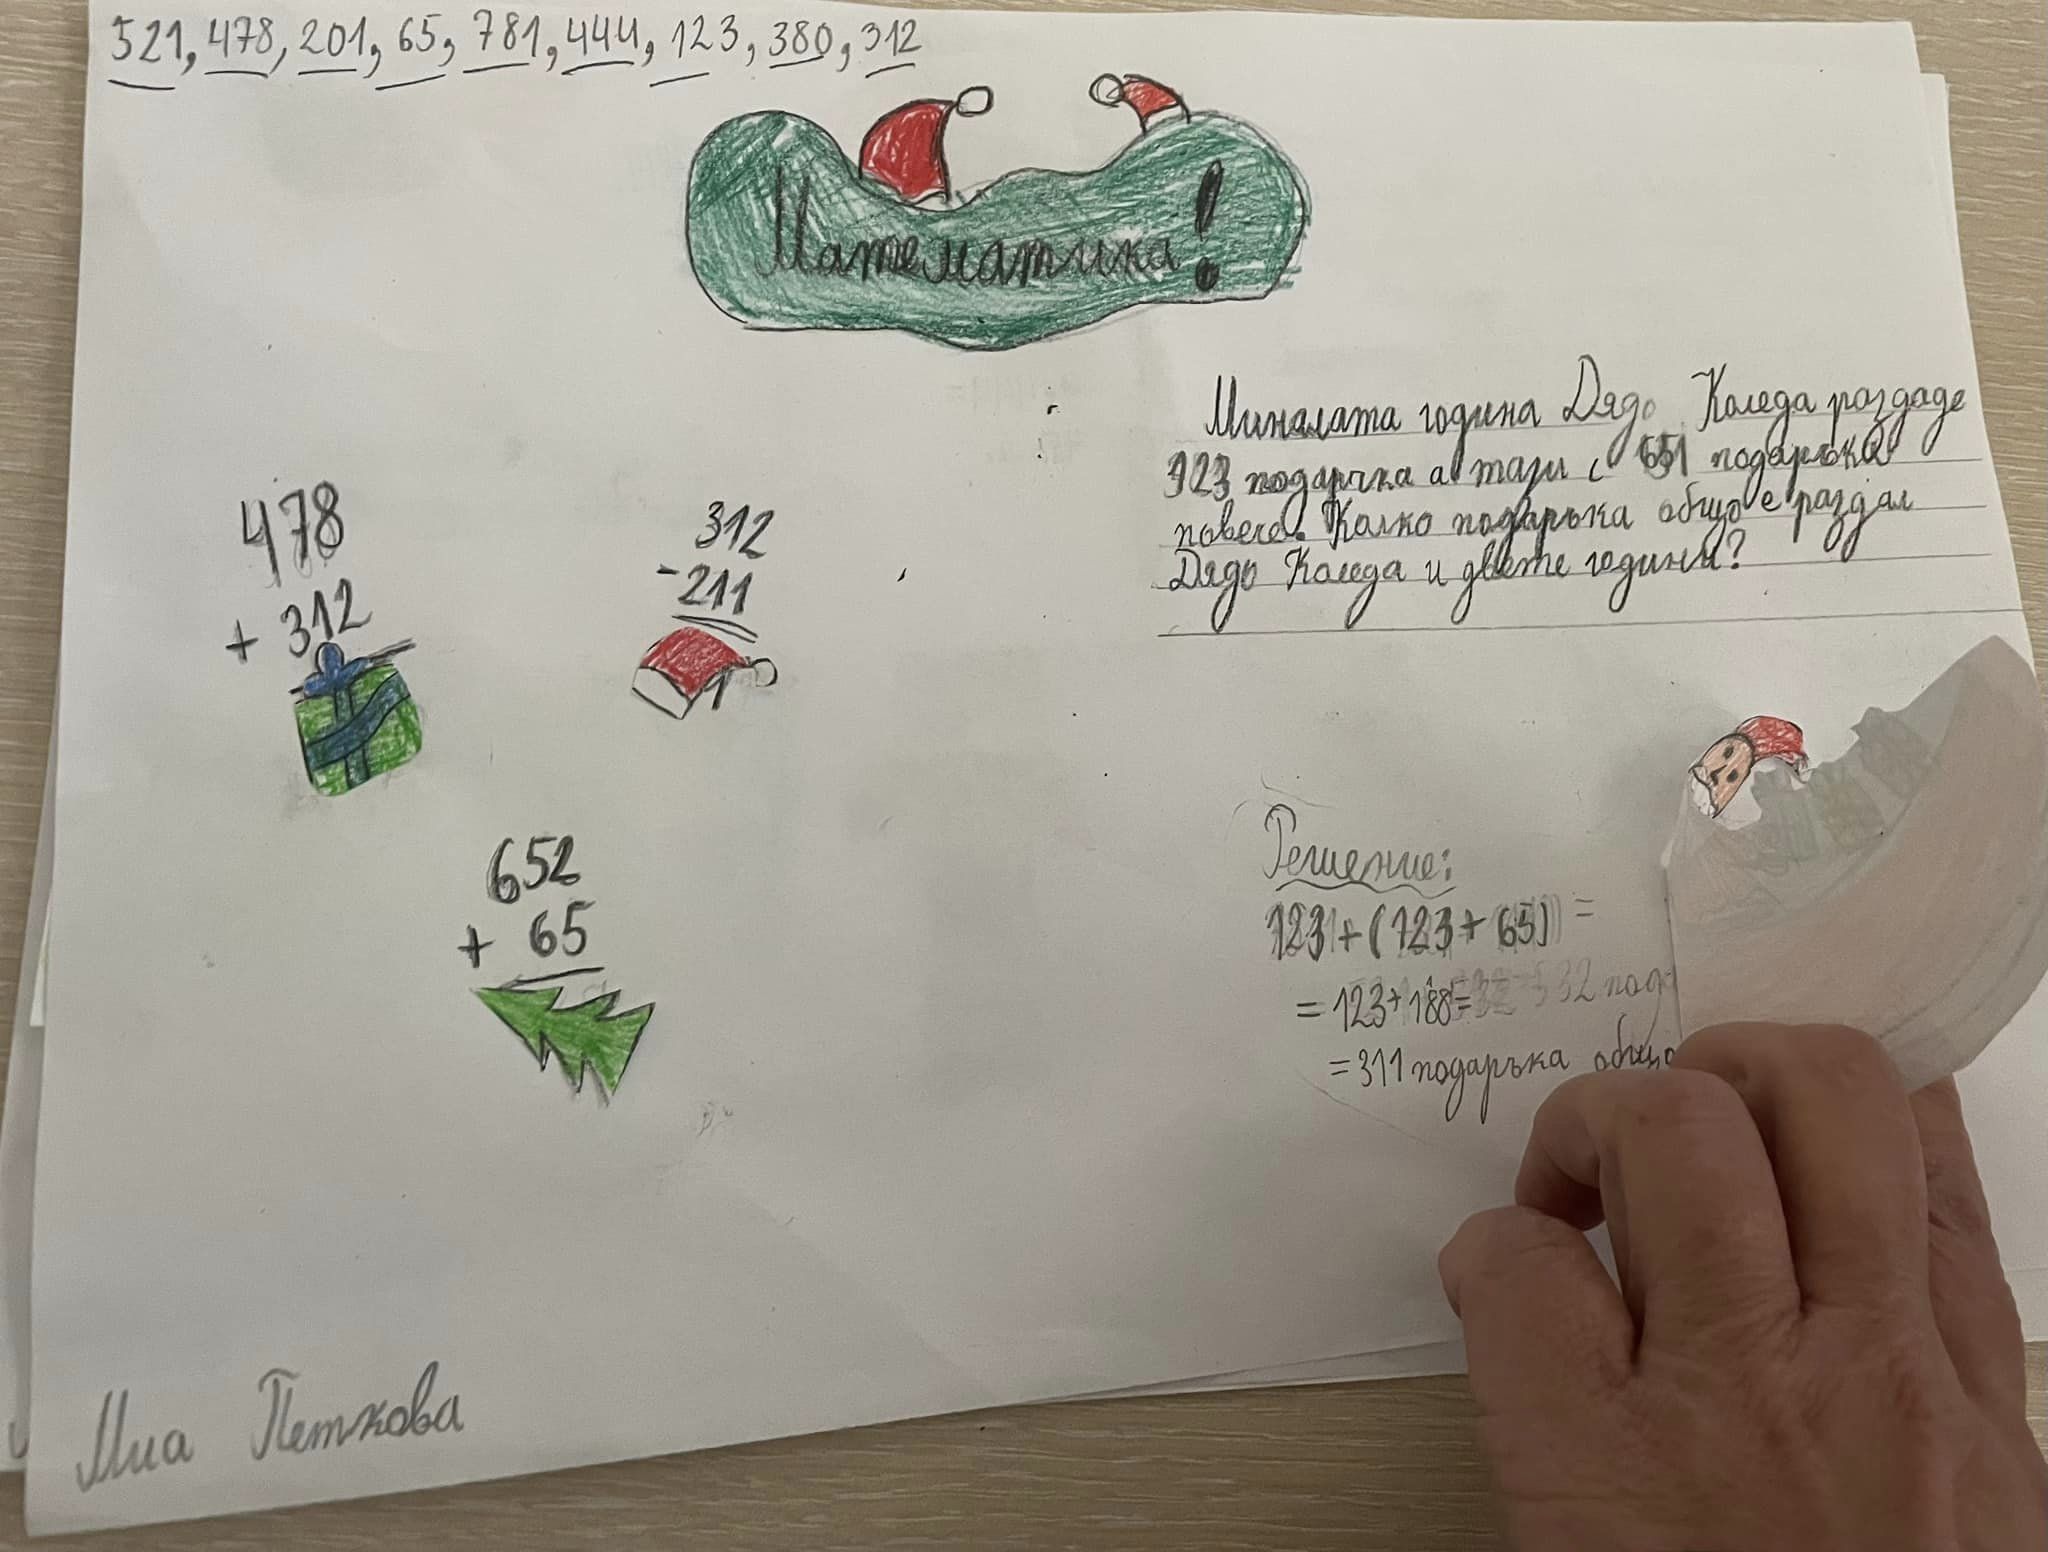 521, 478, 201, 65, 781, 444, 123, 380, 312
Математика!
Миналата година Дядо Коледа раздаде
123 подаръчка а тази с 65 подаръка
повече. Колко подаръка общо е раздал
Дядо Коледа и двете години?
478
+ 312
312
- 211
1
652
+ 65
Решение:
123+(123+65)=
=123+188=
=311 подаръка общо
Миа Петкова